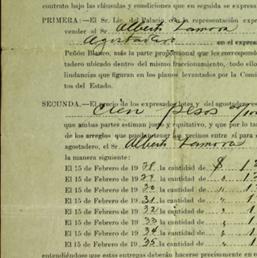 contrato bajo las cláusulas y condiciones que en seguida se expresan
PRIMERA:—El Sr. Lic. del Palacio, en la representación expre
vender al Sr. Alberto Zamora
Agostadero en el expres
Peñón Blanco, más la parte proporcional que les correspond
tadero ubicado dentro del mismo fraccionamiento, todo ello
lindancias que figuran en los planos levantados por la Comisi
tos del Estado.
SEGUNDA.—El precio de los expresados lotes y del agostadero es
Cien pesos
que ambas partes estiman justo y equitativo, y que por la ta
de los arreglos que puedan tener los vecinos entre sí para
agostadero, el Sr. Alberto Zamora
la manera siguiente:
El 15 de Febrero de 19 28, la cantidad de $ 1
El 15 de Febrero de 19 29, la cantidad de 1
El 15 de Febrero de 19 30, la cantidad de 1
El 15 de Febrero de 19 31, la cantidad de 1
El 15 de Febrero de 19 32, la cantidad de 1
El 15 de Febrero de 19 33, la cantidad de 1
El 15 de Febrero de 19 34, la cantidad de 1
El 15 de Febrero de 19 35, la cantidad de 1
entendiéndose que estas entregas deberán hacerse precisamente en